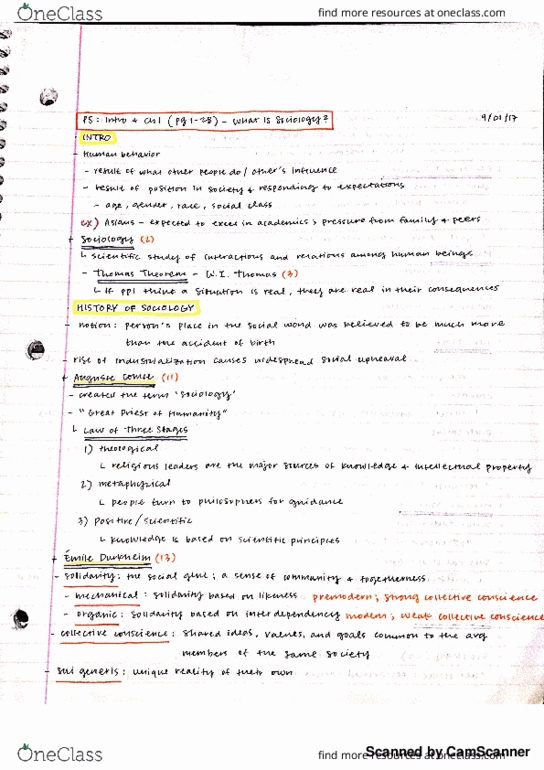 OneClass
find more resources at oneclass.com
PS: Intro + Ch1 (pg 1-28) - What is Sociology?
9/01/17
INTRO
- Human behavior
- result of what other people do / other's influence
- result of position in society & responding to expectations
- age, gender, race, social class
ex) Asians - expected to excel in academics > pressure from family & peers
+ Sociology (2)
↳ scientific study of interactions and relations among human beings
- Thomas Theorem - W.I. Thomas (3)
↳ If ppl think a situation is real, they are real in their consequences
HISTORY OF SOCIOLOGY
- notion: person's place in the social world was believed to be much more
than the accident of birth
- rise of industrialization causes widespread social upheaval
+ Auguste Comte (11)
- created the term 'sociology'
- "Great Priest of Humanity"
↳ Law of Three Stages
1) theological
↳ religious leaders are the major sources of knowledge & intellectual property
2) metaphysical
↳ people turn to philosophers for guidance
3) Positive / Scientific
↳ knowledge is based on scientific principles
+ Émile Durkheim (13)
- solidarity: the social glue; a sense of community & togetherness
- mechanical: solidarity based on likeness premodern; strong collective conscience
- organic: solidarity based on interdependency modern; weak collective conscience
- collective conscience: shared ideas, values, and goals common to the avg
members of the same society
- sui generis: unique reality of their own
OneClass
find more resources at oneclass.com
Scanned by CamScanner